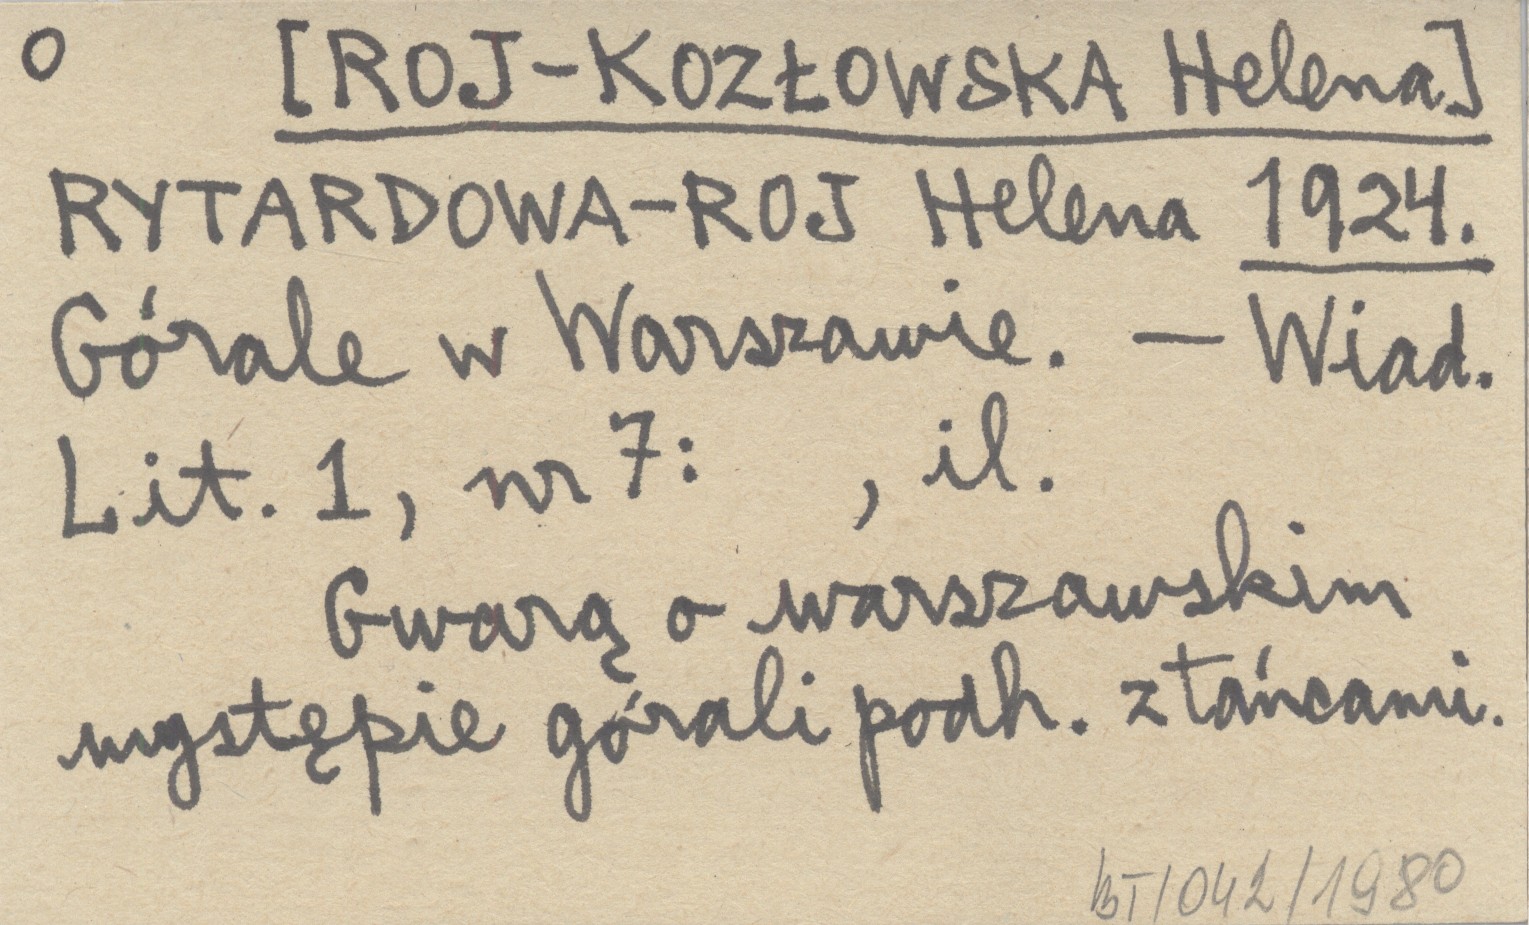 o [ROJ-KOZŁOWSKA Helena]
RYTARDOWA-ROJ Helena 1924.
Górale w Warszawie. — Wiad.
Lit. 1, nr 7: , il.
Gwarą o warszawskim
występie górali podh. z tańcami.
BT/042/1980